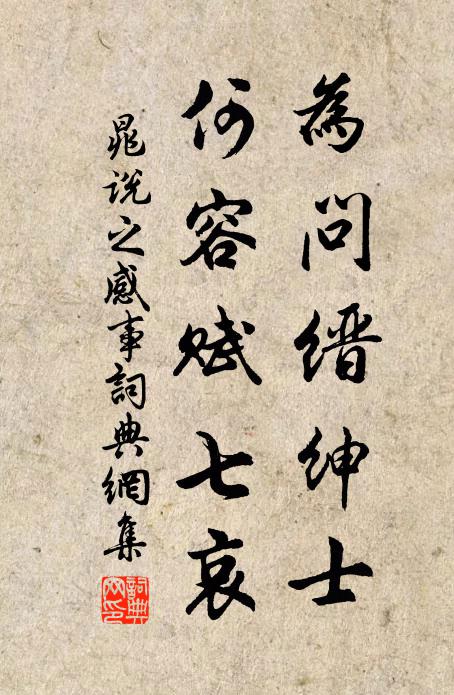 為問缙紳士
何容赋七哀
晁說之感事詞典網集
詞典
网印